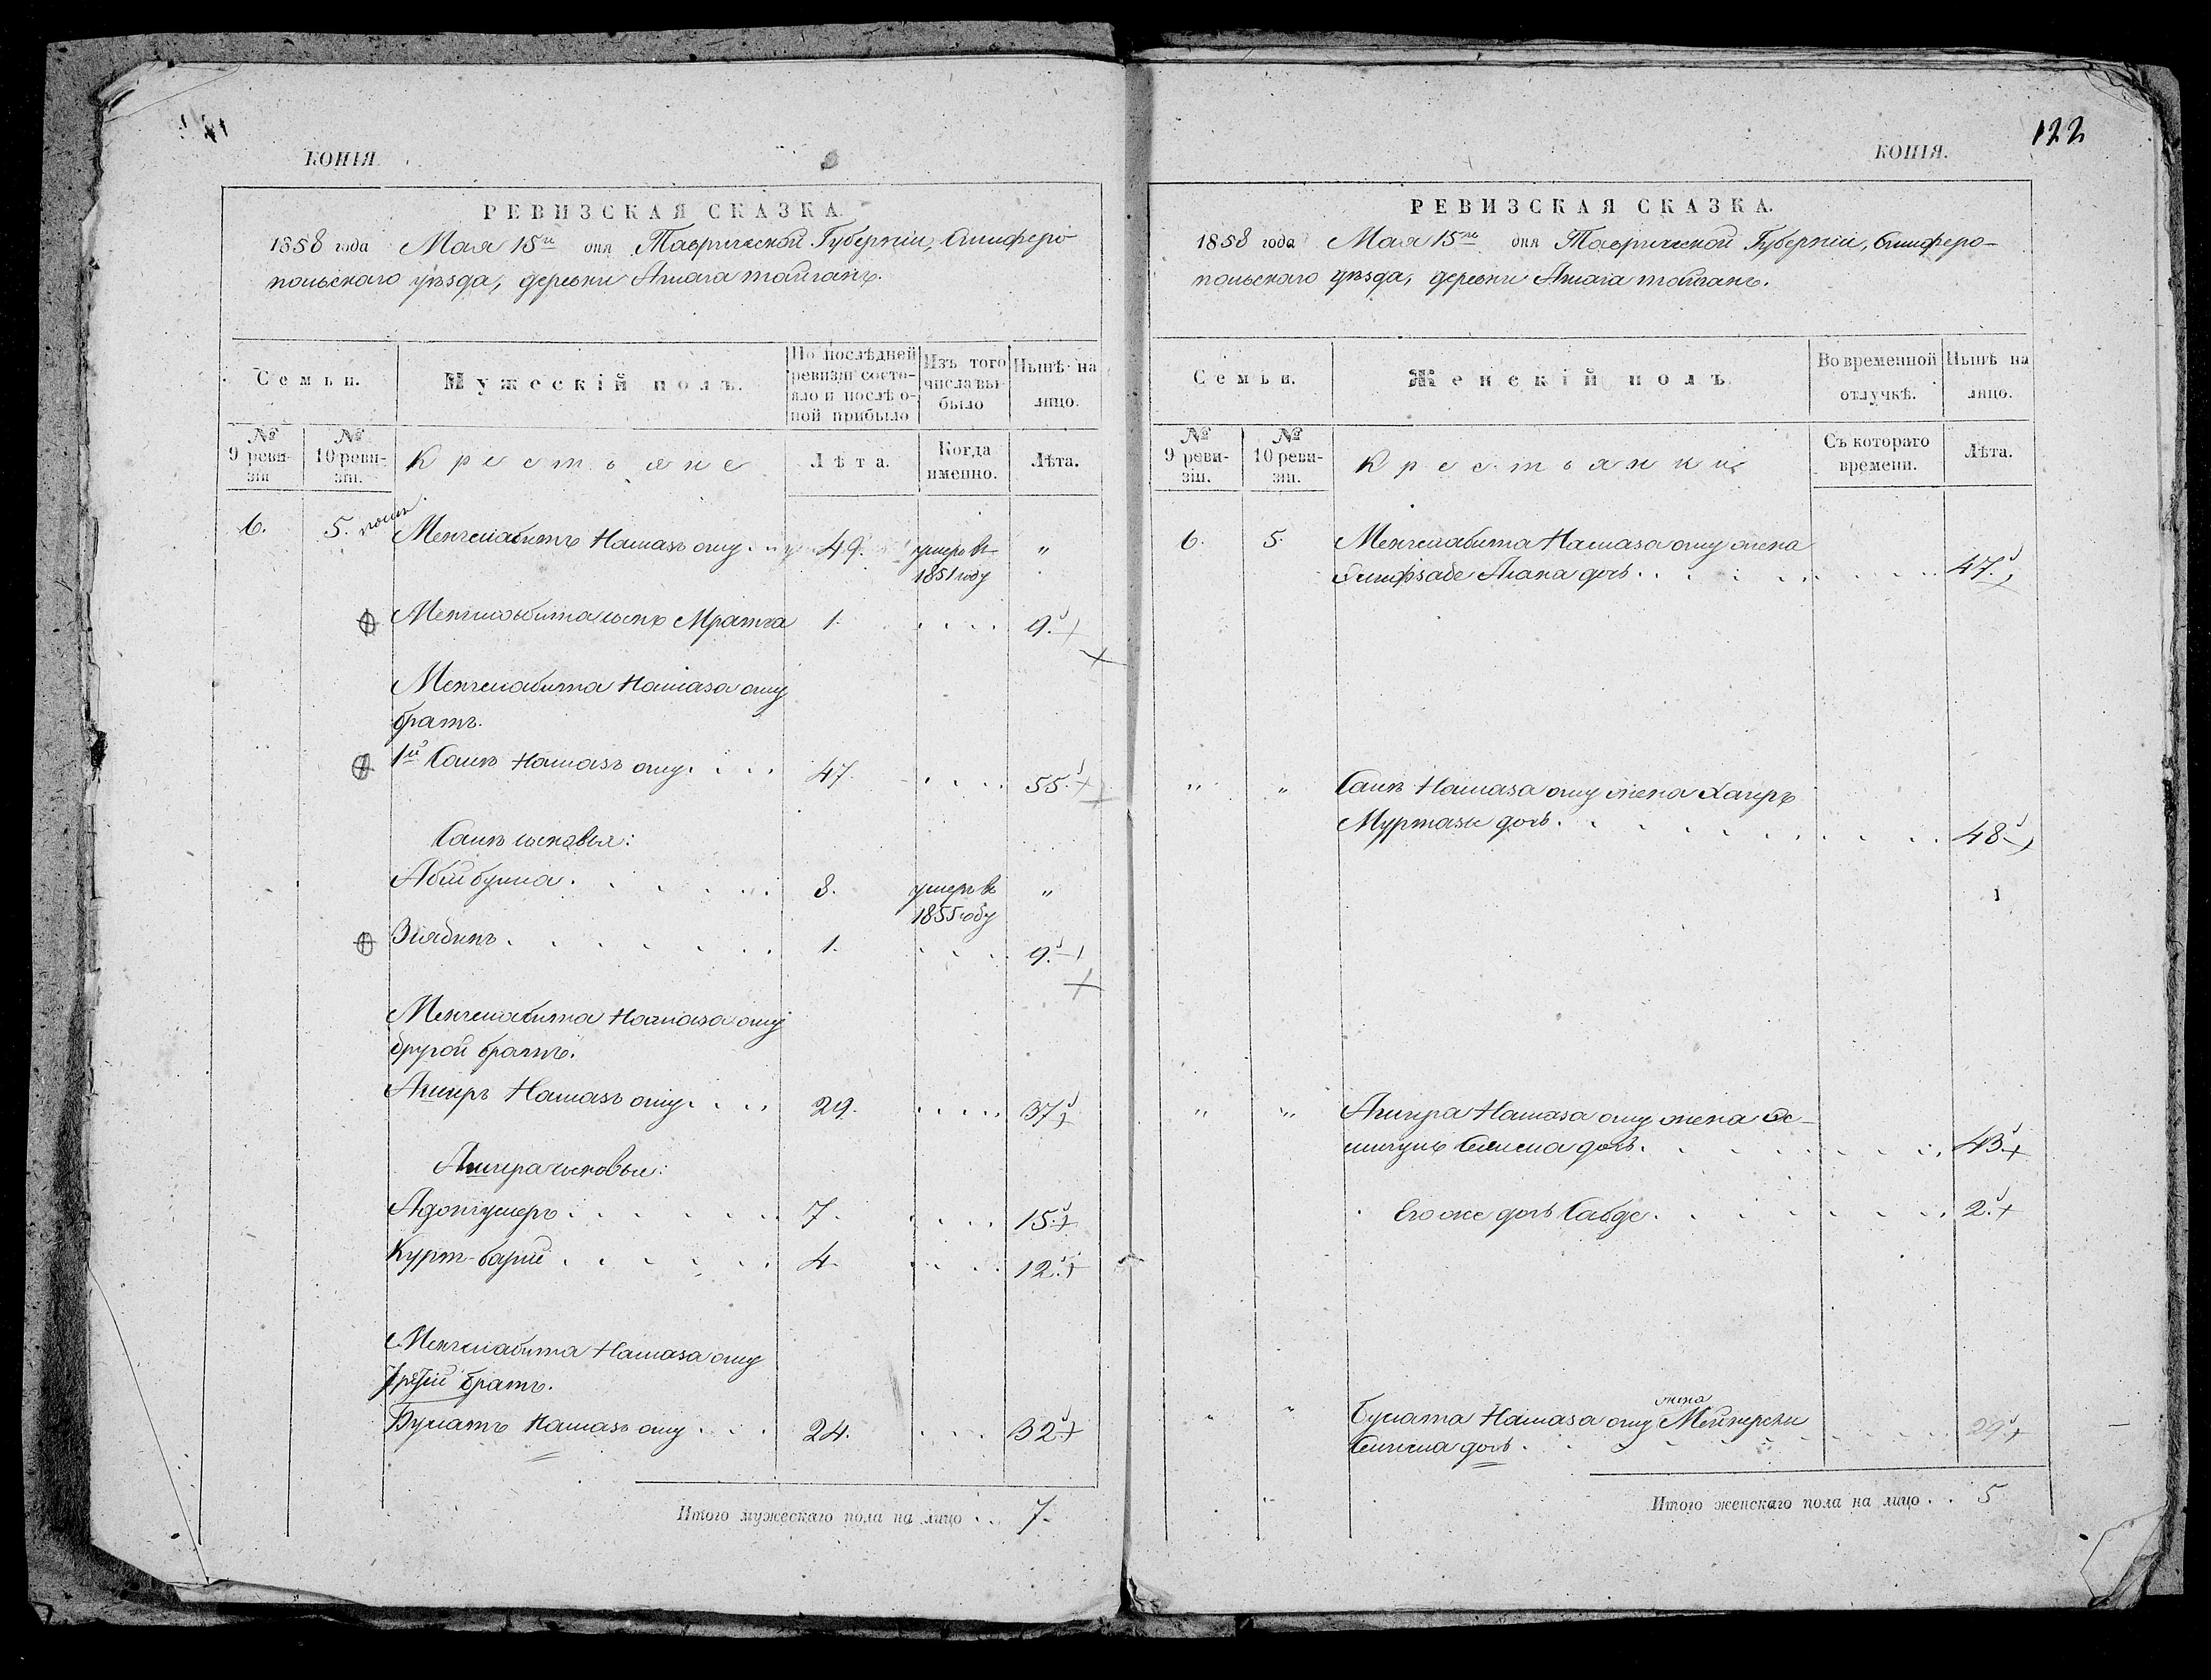 КОПІЯ.
РЕВИЗСКАЯ СКАЗКА.
1858 года Мая 15го дня Таврической Губерніи, Симферо-
польскаго уѣзда, деревни Ашага тайганъ.
Семьи.
Мужескій полъ.
По послѣдней ревизіи состо-
яло и послѣ о-
ной прибыло
Изъ того числа вы-
было
Нынѣ на лицо.
№ 9 реви-
зіи
№ 10 реви-
зіи.
Крестьяне
Лѣта.
Когда именно.
Лѣта.
6. 5. Менглабитъ Намазъ оглу 49. умеръ въ 1851 году "
Менглабита сынъ Мратша 1. 9.
Менглабита Намаза оглу
братъ.
1й Саинъ Намазъ оглу 47. 55.
Саинъ сыновья:
Абибулла 8. умеръ въ 1855 году "
Зіядинъ 1. 9.
Менглабита Намаза оглу
другой братъ.
Аширъ Намазъ оглу 29. 37.
Ашира сыновья:
7. 15.
Курт-багый 4. 12.
Менглабита Намаза оглу
третій братъ.
Булатъ Намазъ оглу 24. 32.
Итого мужескаго пола на лицо . . 7.
122
КОПІЯ.
РЕВИЗСКАЯ СКАЗКА.
1858 года Мая 15го дня Таврической Губерніи, Симферо-
польскаго уѣзда, деревни Ашага тайганъ.
Семьи.
Женскій полъ.
Во временной отлучкѣ.
Нынѣ на лицо.
№ 9 реви-
зіи.
№ 10 реви-
зіи.
Крестьянки
Съ котораго времени.
Лѣта.
6. 5. Менглабита Намаза оглу жена
дочь 47.
" " Саинъ Намаза оглу жена Хаиръ
Муртазы дочь 48.
" " Ашира Намаза оглу жена Эс-
дочь 43.
Его же дочь Сабде 2.
" " Булата Намаза оглу жена
дочь 29.
Итого женскаго пола на лицо . . 5